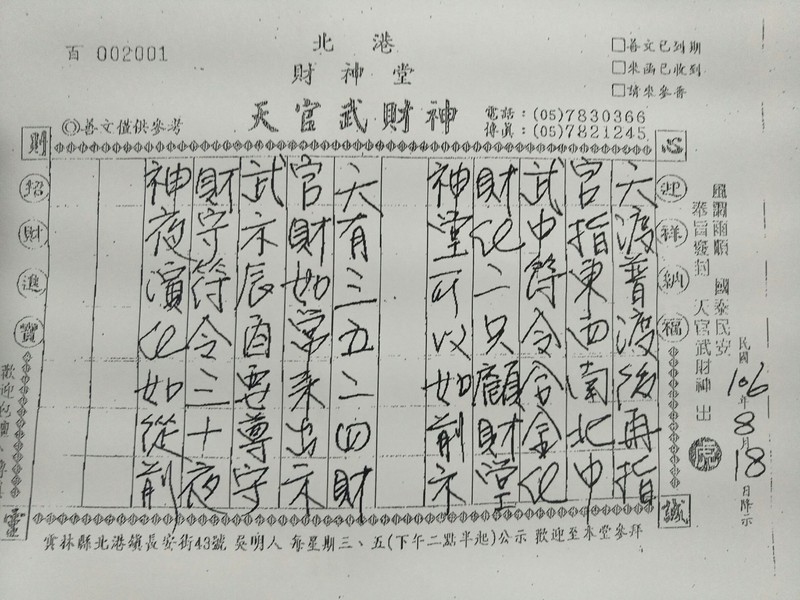 百 002001
北港
財神堂
天官武財神
◎善文僅供參考
電話：(05)7830366
傳真：(05)7821245
□善文已到期
□來函已收到
□請來參香
風調雨順 國泰民安
奉旨發封 天官武財神 出
民國106年8月18日降示
心
誠
則
靈
迎祥納福
招財進寶
六渡普渡後再指
官指東西南北中
武中符令合金化
財化二只願財堂
神堂可以如前示
六有三五二四財
官財如常來出示
武示辰酉要尊守
財守符令三十夜
神夜濱化如從前
歡迎
雲林縣北港鎮長安街43號 吳明人 每星期三、五(下午二點半起)公示 歡迎至本堂參拜